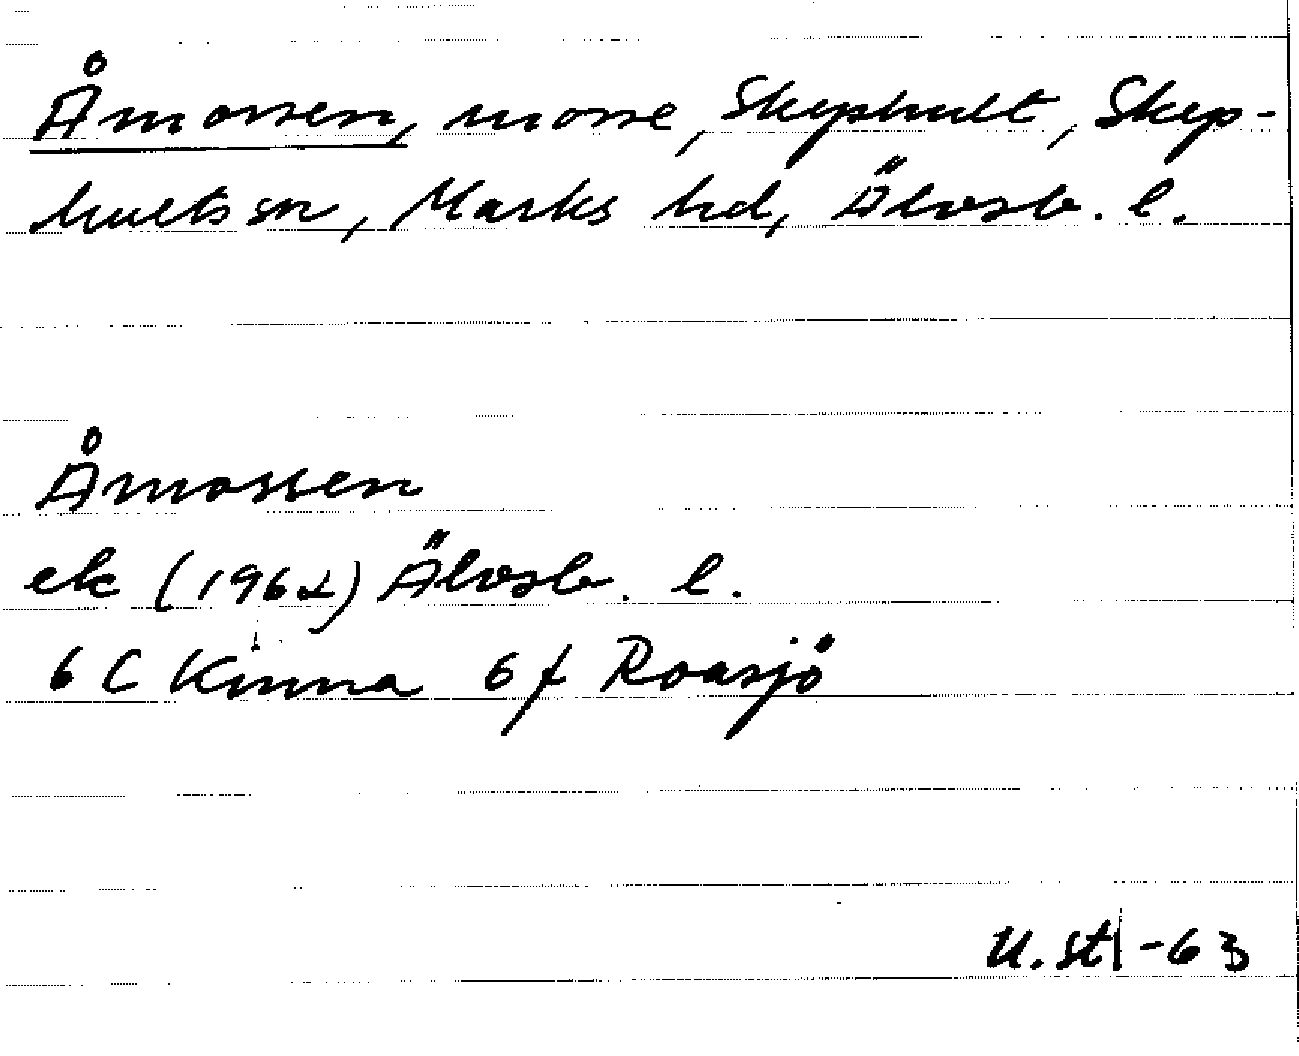 Åmossen, mosse, Skephult, Skep-
hults sn, Marks hd, Älvsb. l.
Åmossen
ek (1962) Älvsb. l.
6 C Kinna 6 f Roasjö
U. st -63